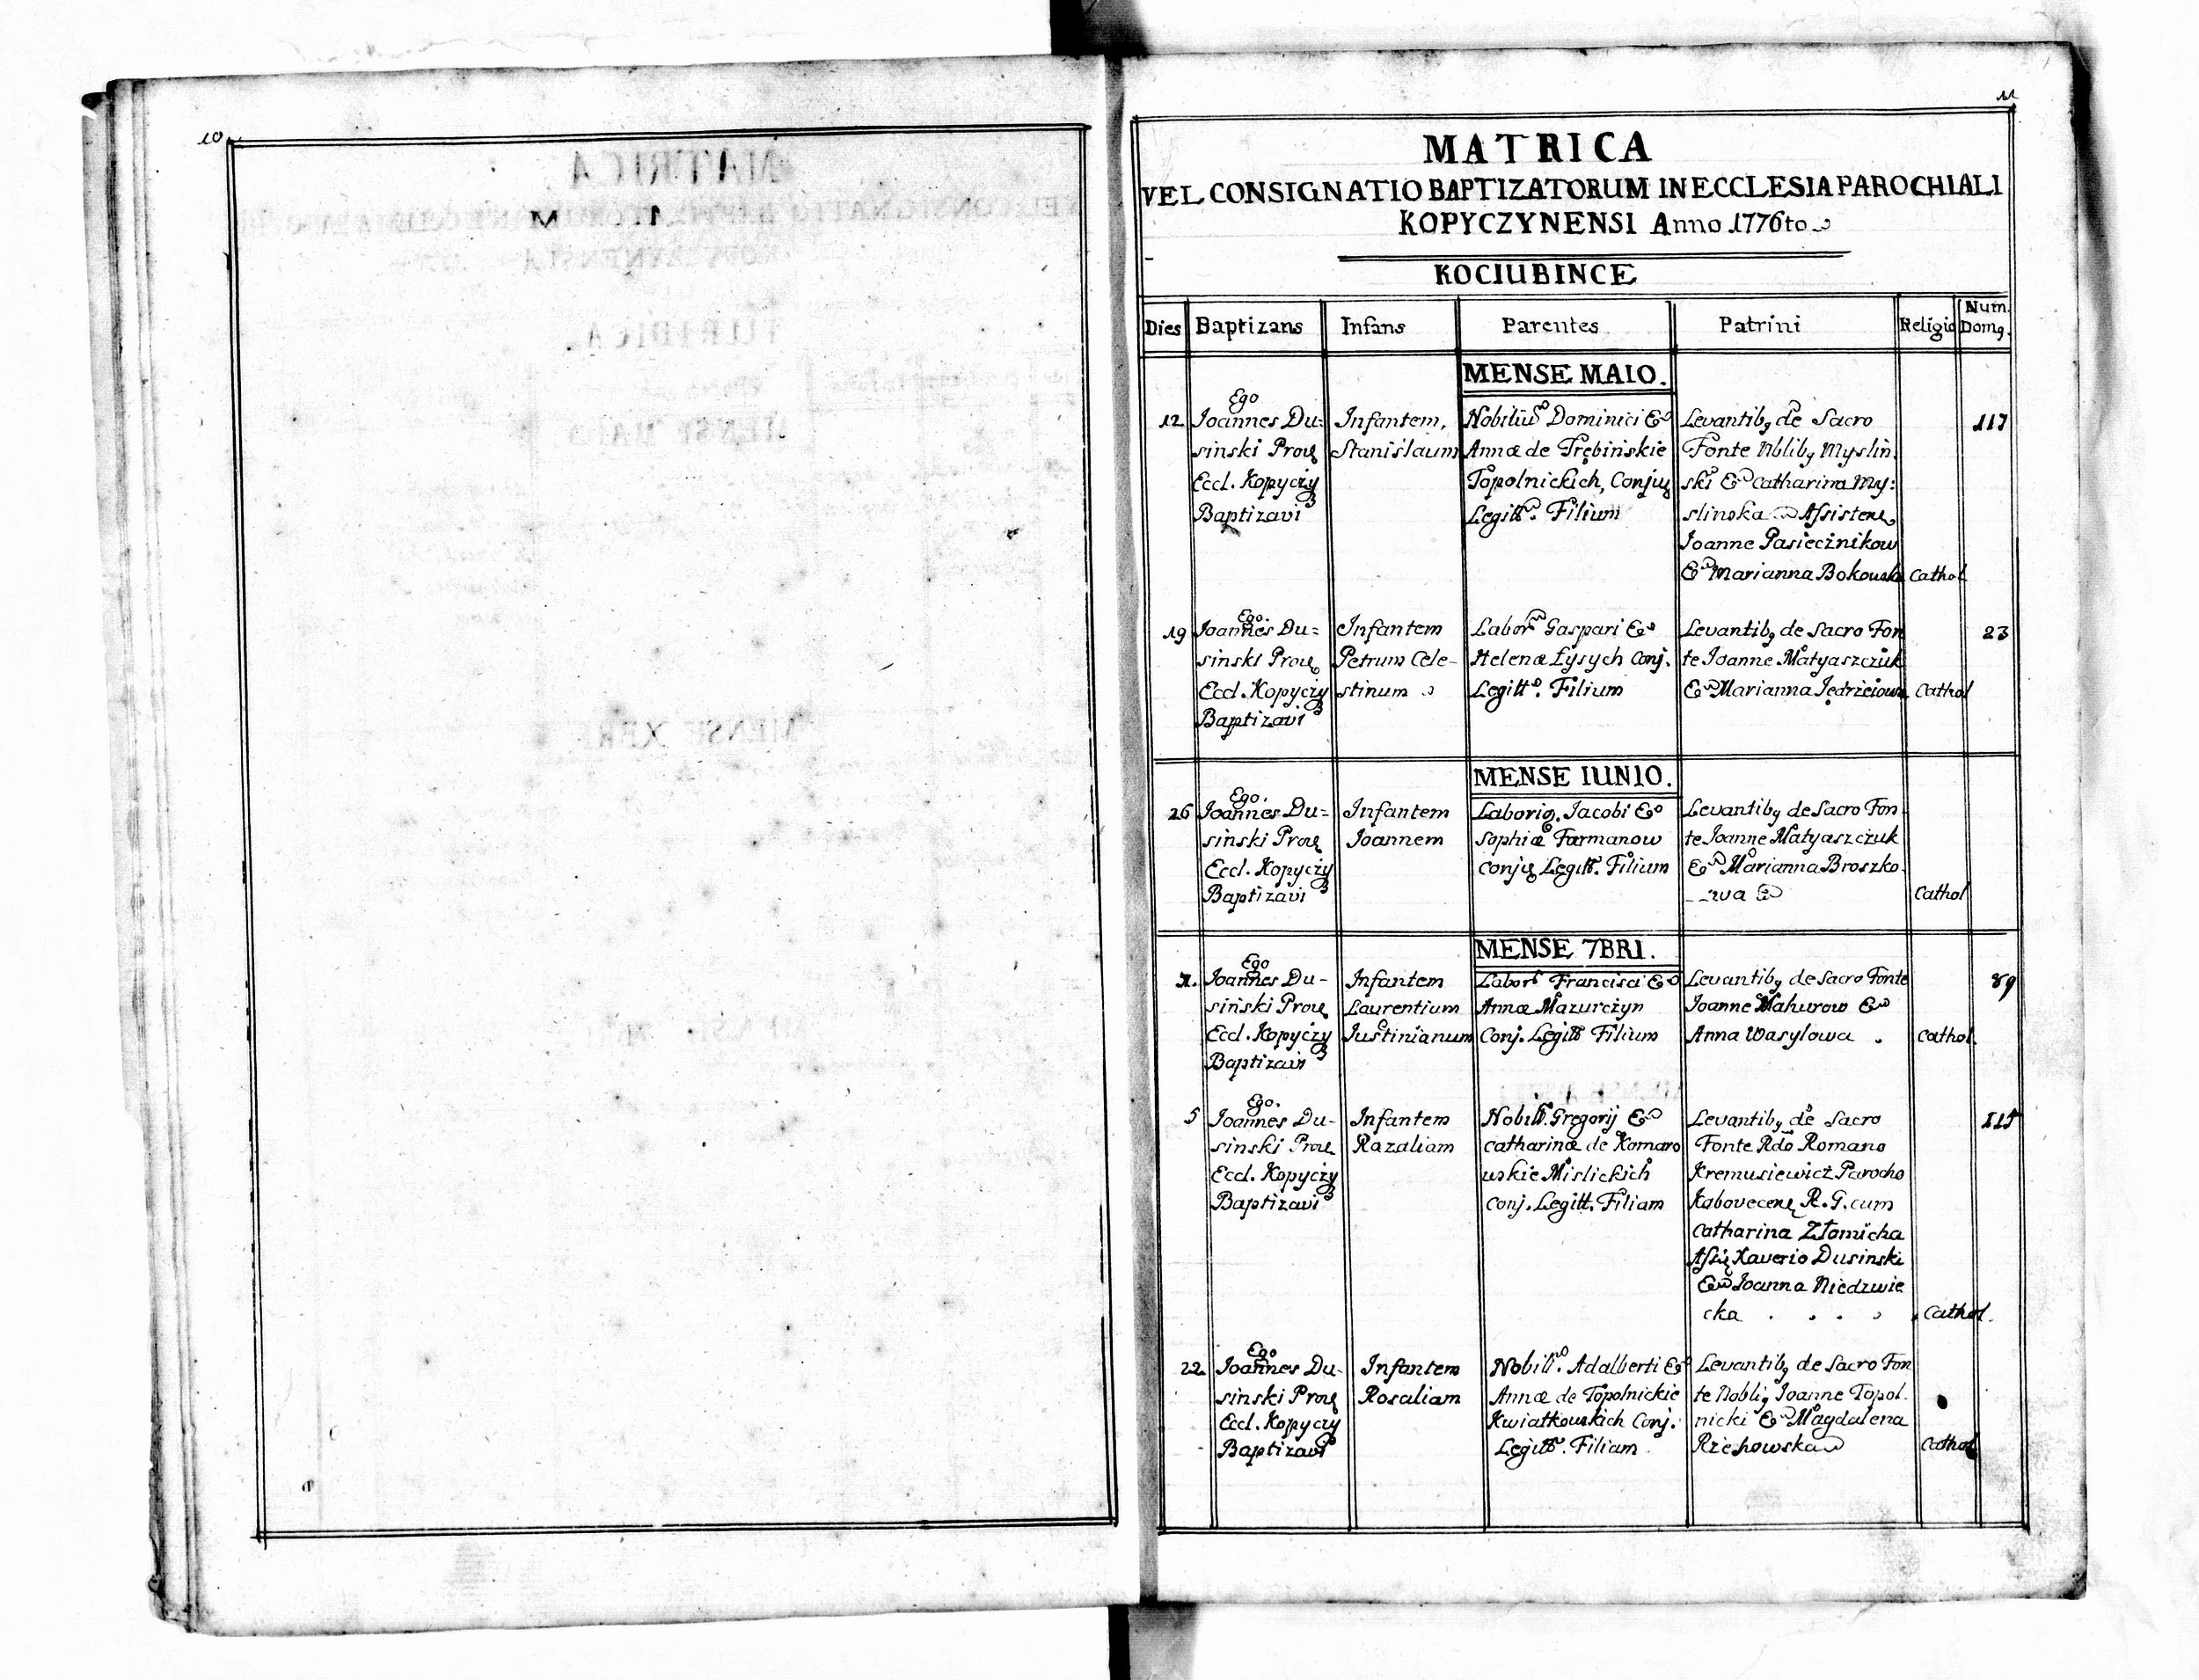 10
11
MATRICA
VEL CONSIGNATIO BAPTIZATORUM IN ECCLESIA PAROCHIALI
KOPYCZYNENSI Anno 1776to
KOCIUBINCE
Dies Baptizans Infans Parentes Patrini Religio Num. Domq.
MENSE MAIO.
12 Ego
Ioannes Du=
sinski Proe
Eccl. Kopyczy
Baptizavi
Infantem,
Stanislaum
Nobiliū Dominici &
Annæ de Trębińskie
Topolnickich, Conjug
Legitt. Filium
Levantibq de Sacro
Fonte Nblibq Myslin:
ski & Catharina My:
slinska Assistene
Ioanne Pasiecznikow
& Marianna Bokowska
Cathol
117
19 Ego
Ioannes Du=
sinski Proe
Eccl. Kopyczy
Baptizavi
Infantem
Petrum Cele-
stinum
Labor Gaspari &
Helenæ Łysych Conj.
Legitt. Filium
Levantibq de Sacro Fon
te Ioanne Matyaszczuk
& Marianna Jędrzeiowa
Cathol
23
MENSE IUNIO.
26 Ego.
Ioannes Du=
sinski Proe
Eccl. Kopyczy
Baptizavi
Infantem
Joannem
Laborio. Jacobi &
Sophiæ Farmanow
Conjug Legitt. Filium
Levantibq de Sacro Fon
te Joanne Matyaszczuk
& Marianna Broszko
--wa
Cathol
MENSE 7BRI.
1. Ego
Joannes Du-
siński Proe
Eccl. Kopyczy
Baptizavi
Infantem
Laurentium
Justinianum
Labor Francisci &
Annæ Mazurczyn
Conj. Legitt Filium
Levantibq de Sacro Fonte
Joanne Mahurow &
Anna Wasylowa .
Cathol.
89
5 Ego.
Joannes Du-
sinski Proe
Eccl. Kopyczy
Baptizavi
Infantem
Razaliam
Nobill. Gregorij &
Catharinæ de Komaro
wskie Mislickich
Conj. Legitt. Filiam
Levantibq de Sacro
Fonte Rdo Romano
Kremusiewicz Parocho
Kabovecene R. G. cum
Catharina Złomicha
Assię Xaverio Dusinski
& Joanna Niedzwie
cka . . . .
Cathol.
115
22 Ego
Joannes Du-
sinski Proe
Eccl. Kopyczy
Baptizavi
Infantem
Rosaliam
Nobill. Adalberti &
Annæ de Topolnickie
Kwiatkowskich Conj.
Legitt. Filiam
Levantibq de Sacro Fon
te Nobliq Joanne Topol.
nicki & Magdalena
Rzehowska
Cathol